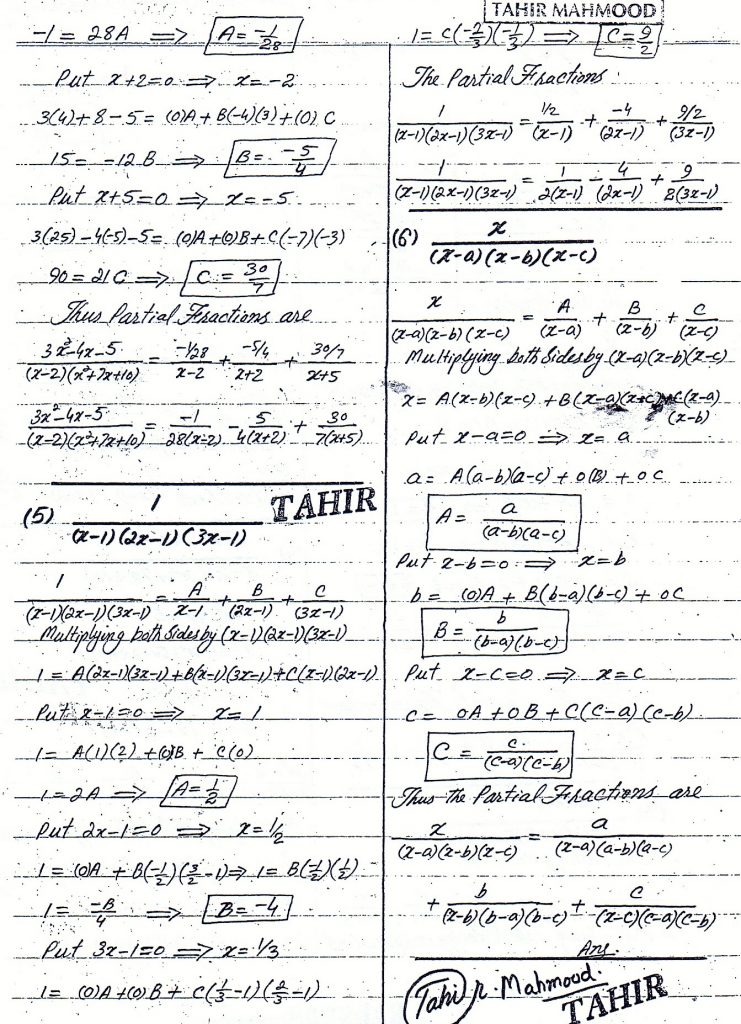 TAHIR MAHMOOD
-1 = 28A ⟹ A = -1/28
Put x+2=0 ⟹ x = -2
3(4)+8-5 = (0)A + B(-4)(3) + (0)C
15 = -12B ⟹ B = -5/4
Put x+5=0 ⟹ x = -5
3(25)-4(-5)-5 = (0)A+(0)B+C(-7)(-3)
90 = 21C ⟹ C = 30/7
Thus Partial Fractions are
3x²-4x-5/(x-2)(x²+7x+10) = -1/28/x-2 + -5/4/x+2 + 30/7/x+5
3x²-4x-5/(x-2)(x²+7x+10) = -1/28(x-2) - 5/4(x+2) + 30/7(x+5)
(5) 1/(x-1)(2x-1)(3x-1)
TAHIR
1/(x-1)(2x-1)(3x-1) = A/x-1 + B/(2x-1) + C/(3x-1)
Multiplying both Sides by (x-1)(2x-1)(3x-1)
1 = A(2x-1)(3x-1)+B(x-1)(3x-1)+C(x-1)(2x-1)
Put x-1=0 ⟹ x = 1
1 = A(1)(2) + (0)B + C(0)
1 = 2A ⟹ A = 1/2
Put 2x-1=0 ⟹ x = 1/2
1 = (0)A + B(-1/2)(3/2-1) ⟹ 1 = B(-1/2)(1/2)
1 = -B/4 ⟹ B = -4
Put 3x-1=0 ⟹ x = 1/3
1 = (0)A+(0)B + C(1/3-1)(2/3-1)
1 = C(-2/3)(-1/3) ⟹ C = 9/2
The Partial Fractions
1/(x-1)(2x-1)(3x-1) = 1/2/(x-1) + -4/(2x-1) + 9/2/(3x-1)
1/(x-1)(2x-1)(3x-1) = 1/2(x-1) - 4/(2x-1) + 9/2(3x-1)
(6) x/(x-a)(x-b)(x-c)
x/(x-a)(x-b)(x-c) = A/(x-a) + B/(x-b) + C/(x-c)
Multiplying both Sides by (x-a)(x-b)(x-c)
x = A(x-b)(x-c) + B(x-a)(x-c)+C(x-a)
(x-b)
Put x-a=0 ⟹ x = a
a = A(a-b)(a-c) + 0(B) + 0C
A = a/(a-b)(a-c)
Put x-b=0 ⟹ x=b
b = (0)A + B(b-a)(b-c) + 0C
B = b/(b-a)(b-c)
Put x-c=0 ⟹ x=c
c = 0A + 0B + C(c-a)(c-b)
C = c/(c-a)(c-b)
Thus the Partial Fractions are
x/(x-a)(x-b)(x-c) = a/(x-a)(a-b)(a-c)
+ b/(x-b)(b-a)(b-c) + c/(x-c)(c-a)(c-b)
Ans.
Tahir Mahmood.
TAHIR